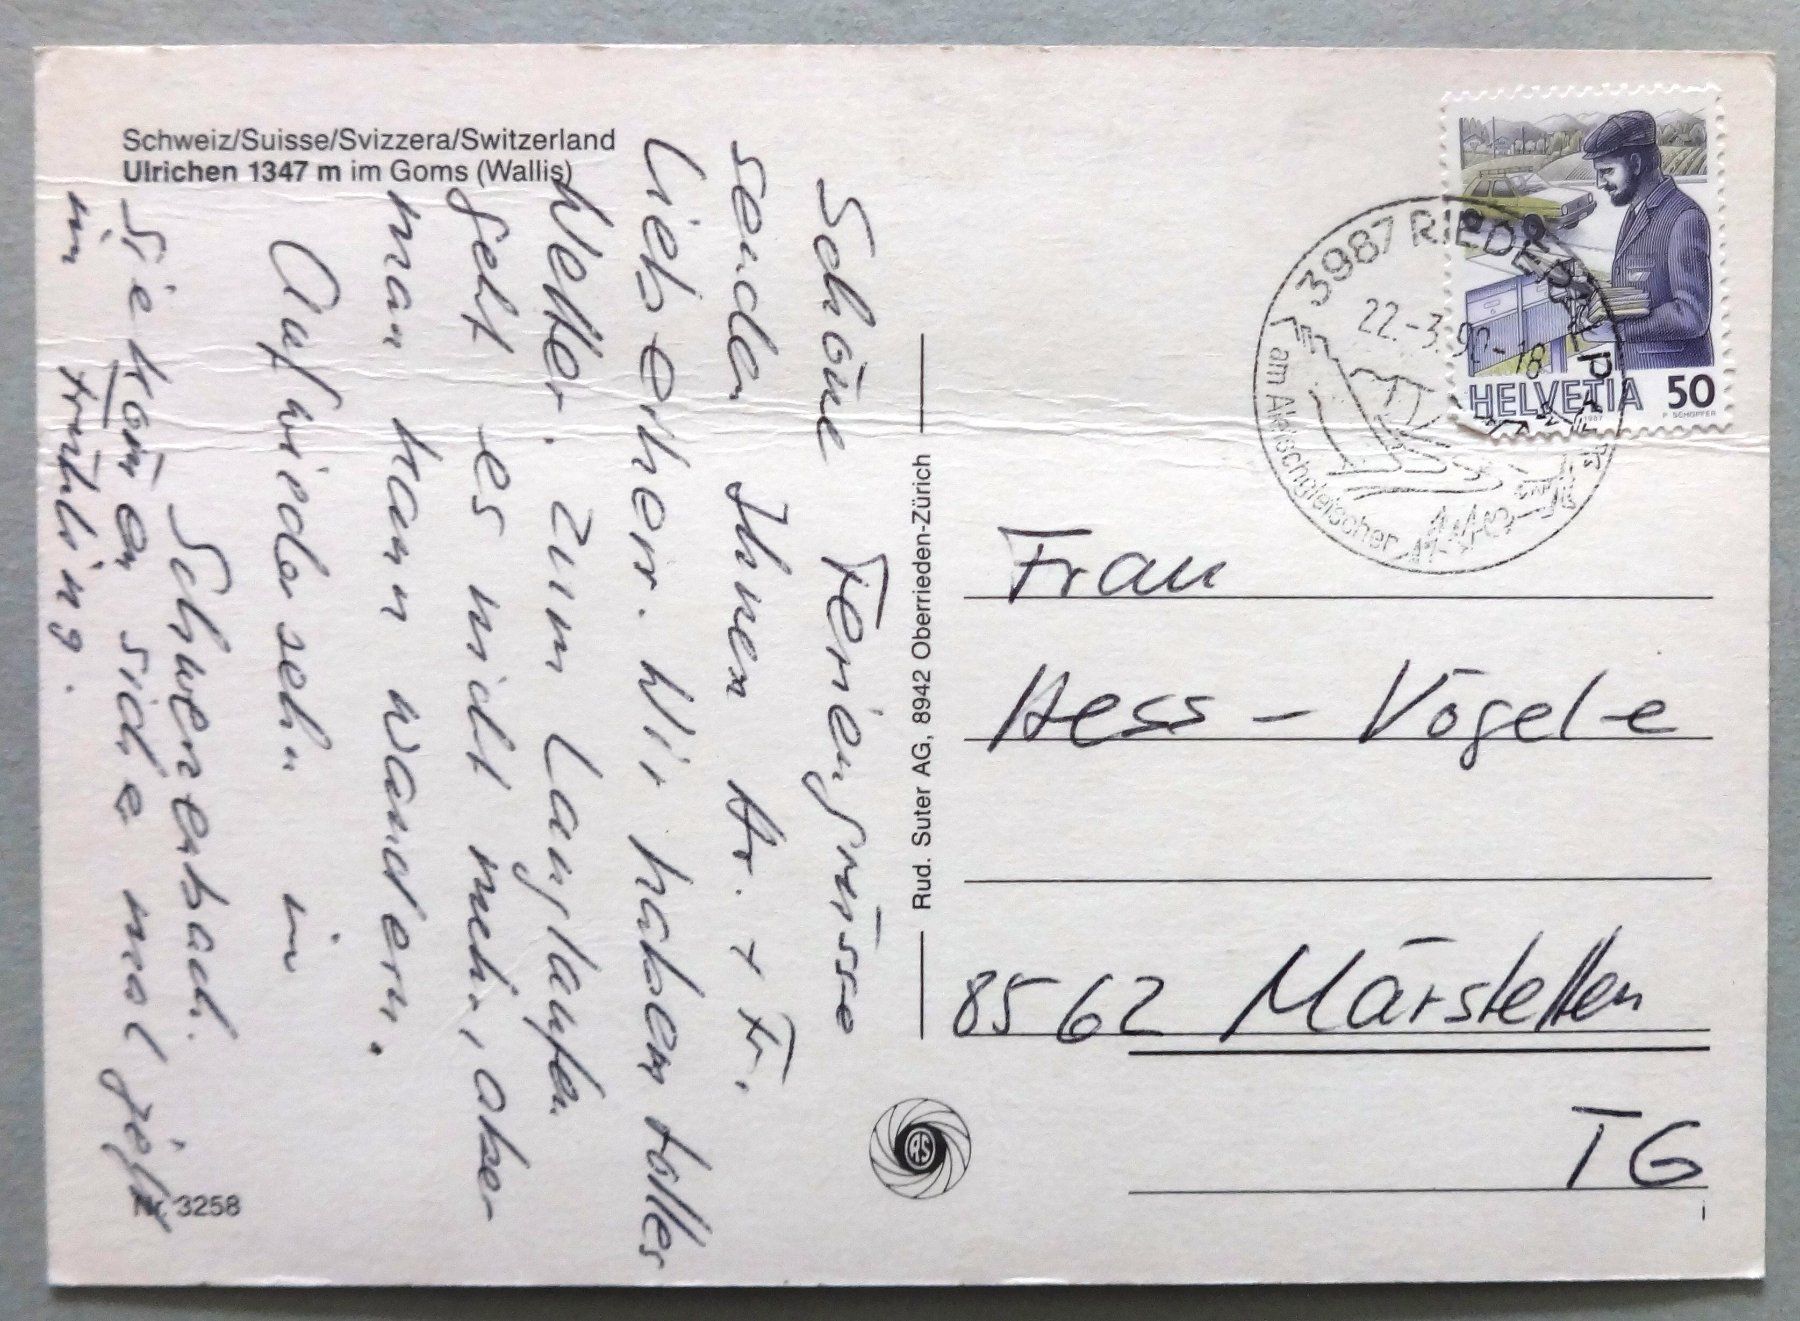 Schweiz/Suisse/Svizzera/Switzerland
Ulrichen 1347 m im Goms (Wallis)
Schöne Feriengrüsse
senden Ihnen Hr. + Fr.
Liebetherr. Wir haben tolles
Wetter. Zum Langlaufen
geht es nicht mehr, aber
man kann wandern.
Auf wiedersehn in
Schwerzenbach.
Sie kommen sicher mal
im Frühling.
Nr. 3258
Rud. Suter AG, 8942 Oberrieden-Zürich
RS
3987 RIEDERALP
22.-3.92-18
am Aletschgletscher
HELVETIA 50
1987 P. SCHOPFER
Frau
Hess-Vögele
8562 Märstetten
TG